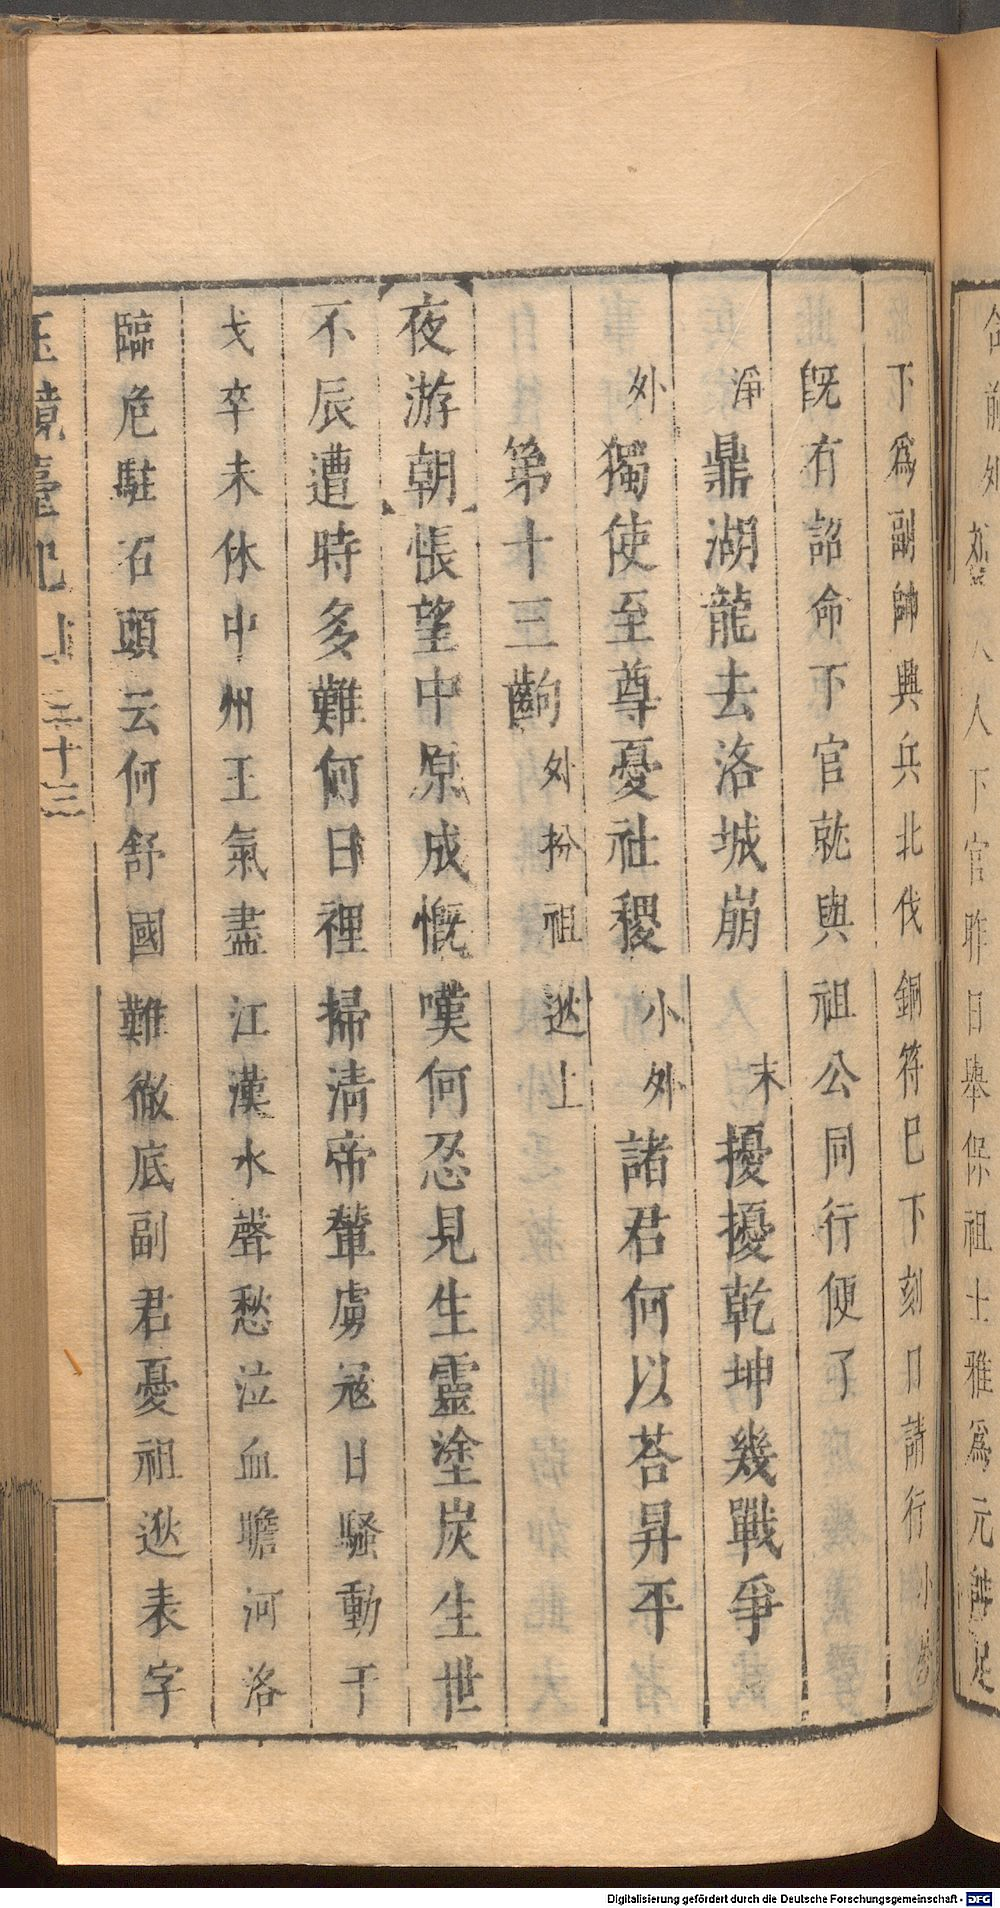 下爲副帥興兵北伐銅符巳下刻日請行小
旣有詔命下官就與祖公同行便了
淨鼎湖龍去洛城崩末擾擾乾坤幾戰爭
外獨使至尊憂社稷小外諸君何以荅昇平
第十三齣外扮祖逖上
夜游朝悵望中原成慨嘆何忍見生靈塗炭生世
不辰遭時多難何日裡掃清帝輦虜冦日騷動干
戈卒未休中州王氣盡江漢水聲愁泣血瞻河洛
臨危駐石頭云何舒國難徹底副君憂祖逖表字
玉鏡臺記 上 三十三
人下官昨日舉保祖士雅爲元帥足
Digitalisierung gefördert durch die Deutsche Forschungsgemeinschaft - DFG